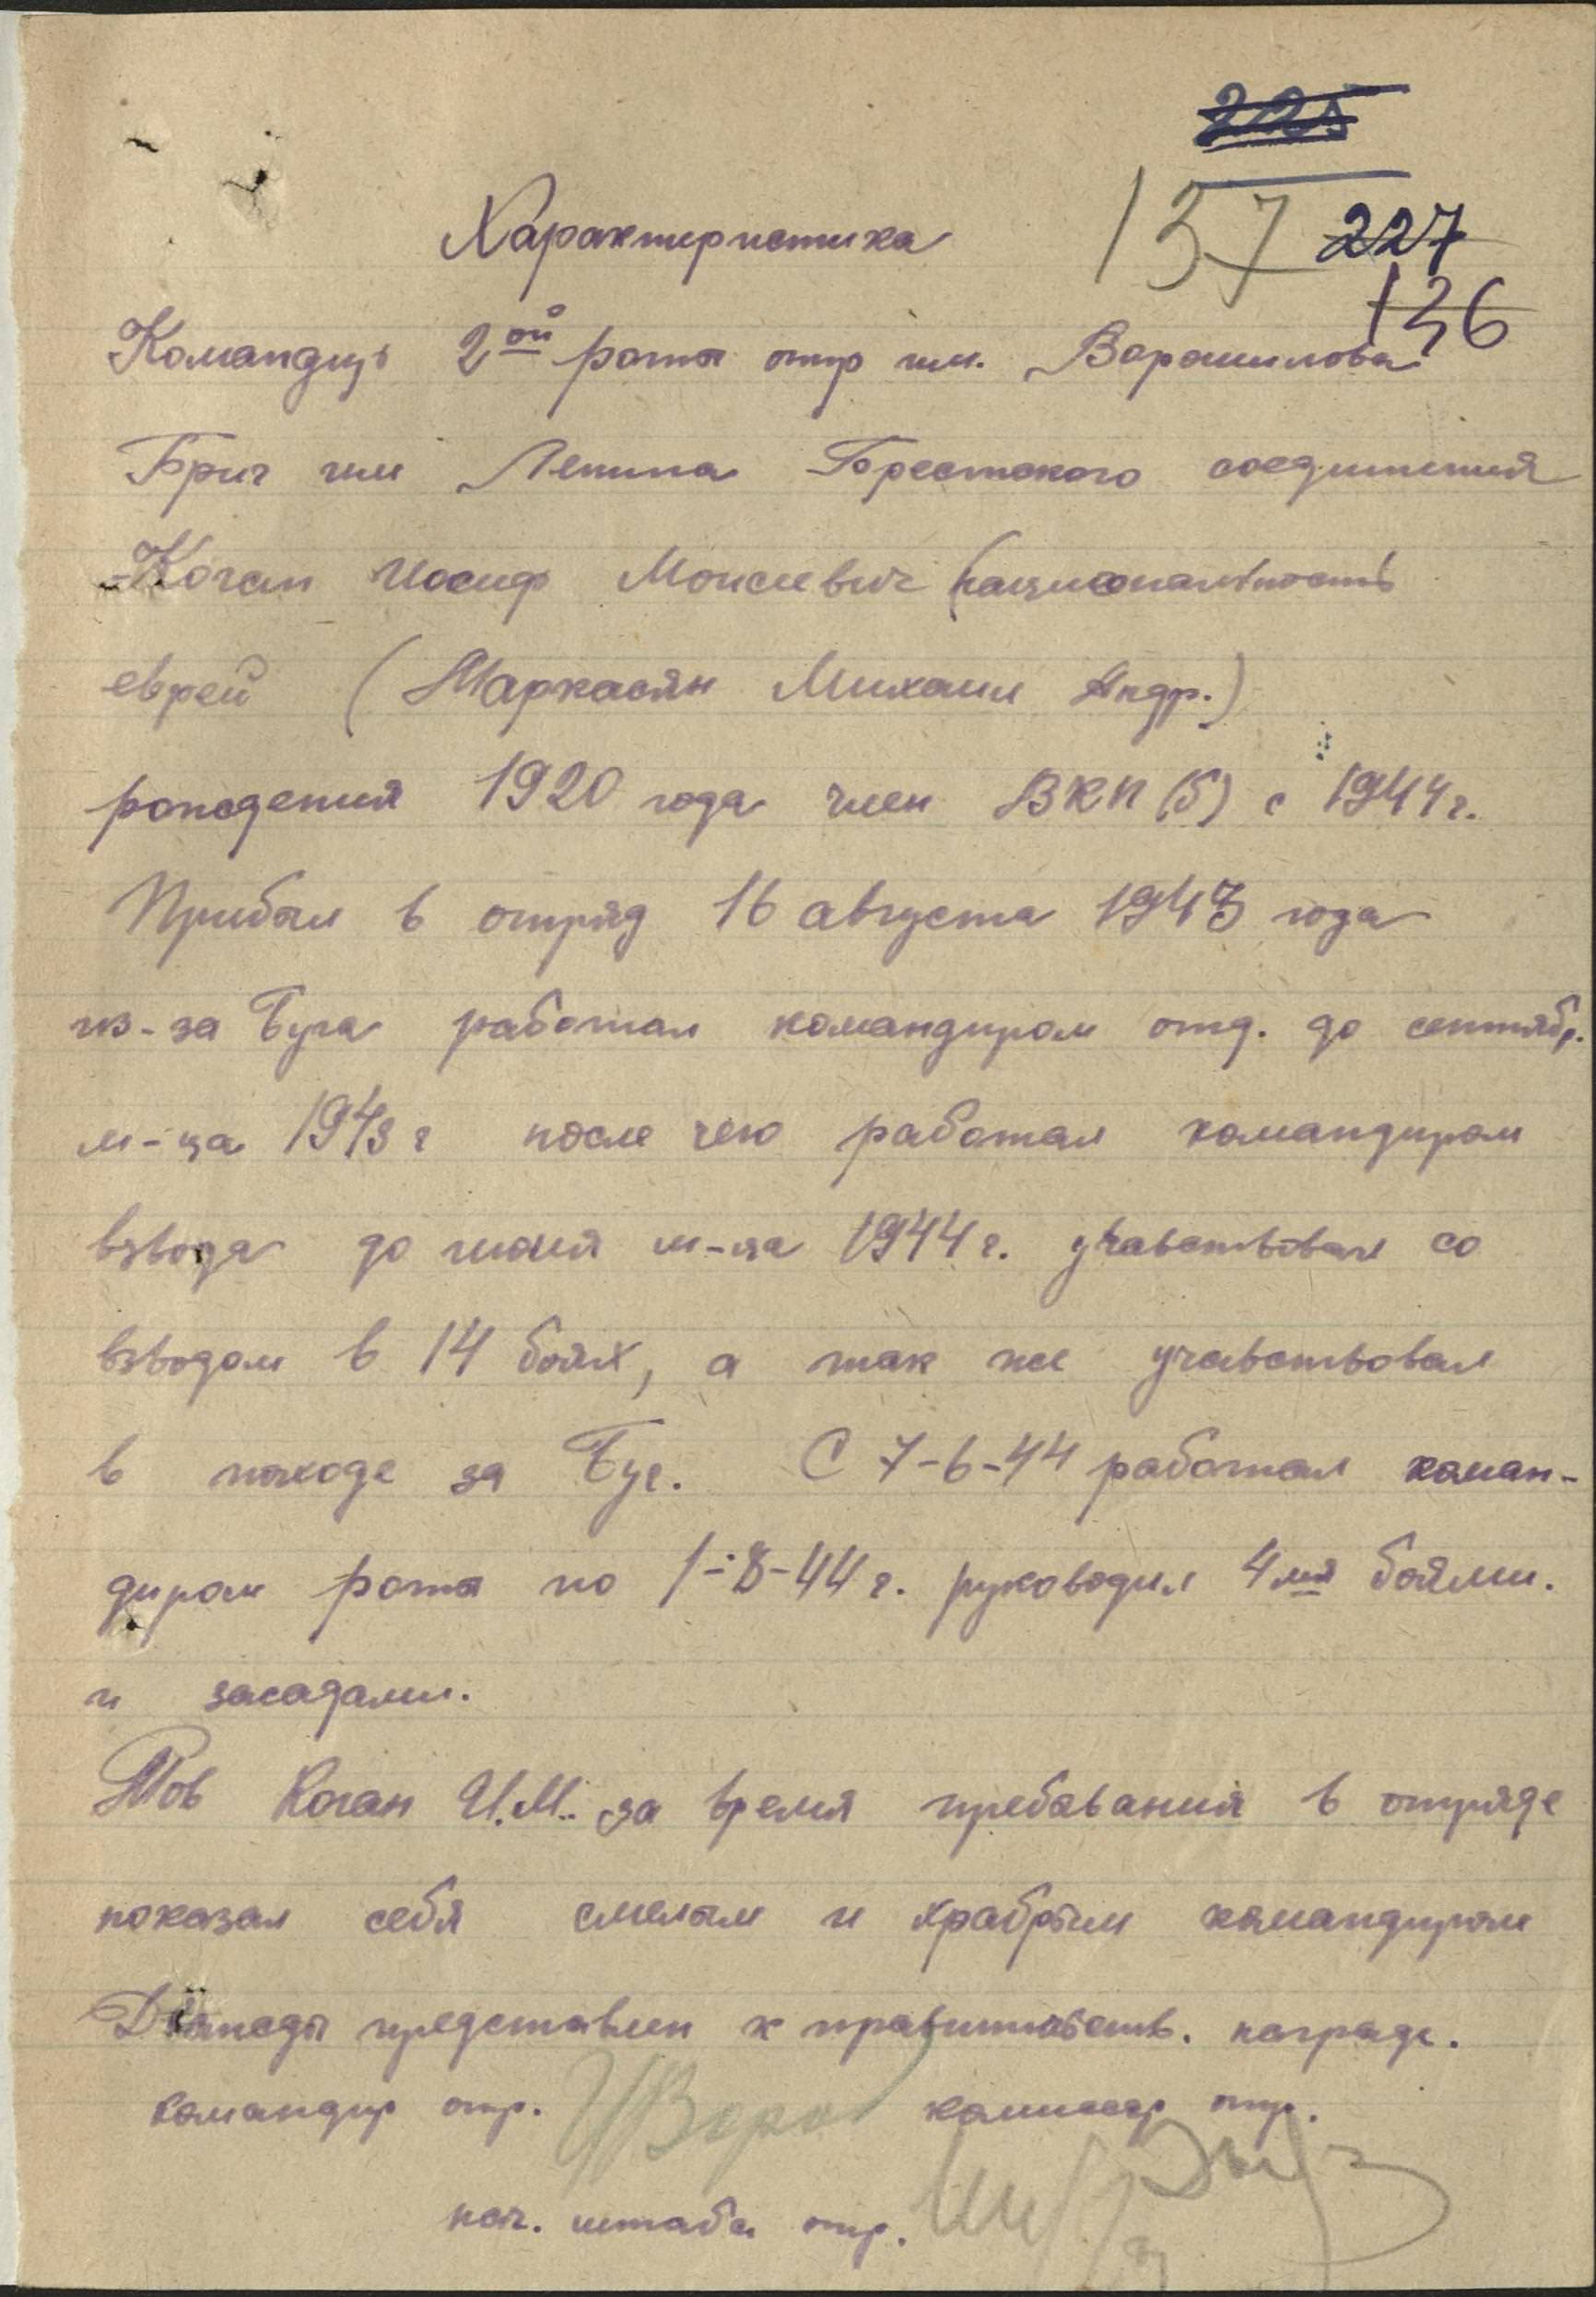 225
Характеристика
137 227
136
Командир 2ой роты отр им. Ворошилова
Бриг им Ленина Брестского соединения
Коган Иосиф Моисеевич (национальность
еврей (Маркасян Михаил Андр.)
рождения 1920 года член ВКП(б) с 1944 г.
Прибыл в отряд 16 августа 1943 года
из-за Буга работал командиром отд. до сентябр.
м-ца 1943 г после чего работал командиром
взвода до июня м-ца 1944 г. учавствовал со
взводом в 14 боях, а так же учавствовал
в походе за Буг. С 7-6-44 работал коман-
диром роты по 1-8-44 г. руководил 4мя боями.
и засадами.
Тов Коган И.М. за время пребывания в отряде
показал себя смелым и храбрым командиром
Дважды представлен к правительств. награде.
командир отр. комиссар отр.
нач. штаба отр.